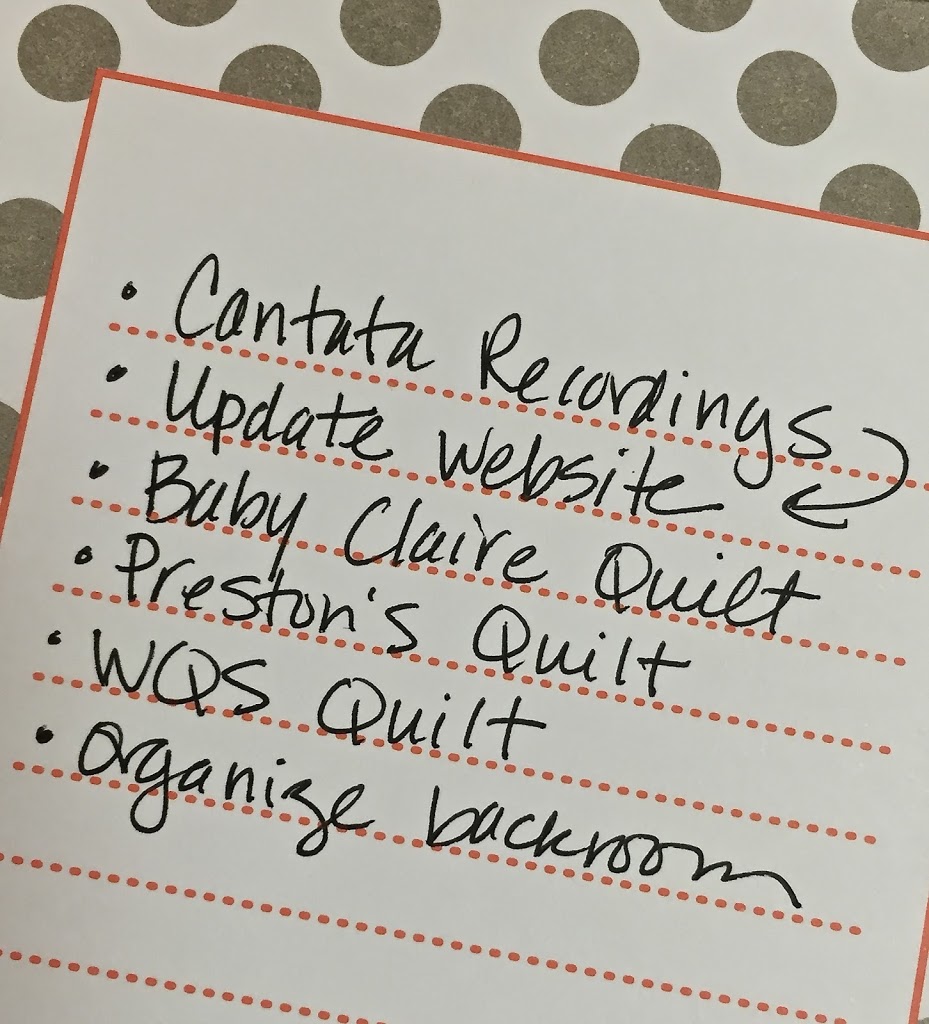 • Cantata Recordings
• Update website
• Baby Claire Quilt
• Preston's Quilt
• WQS Quilt
• Organize backroom